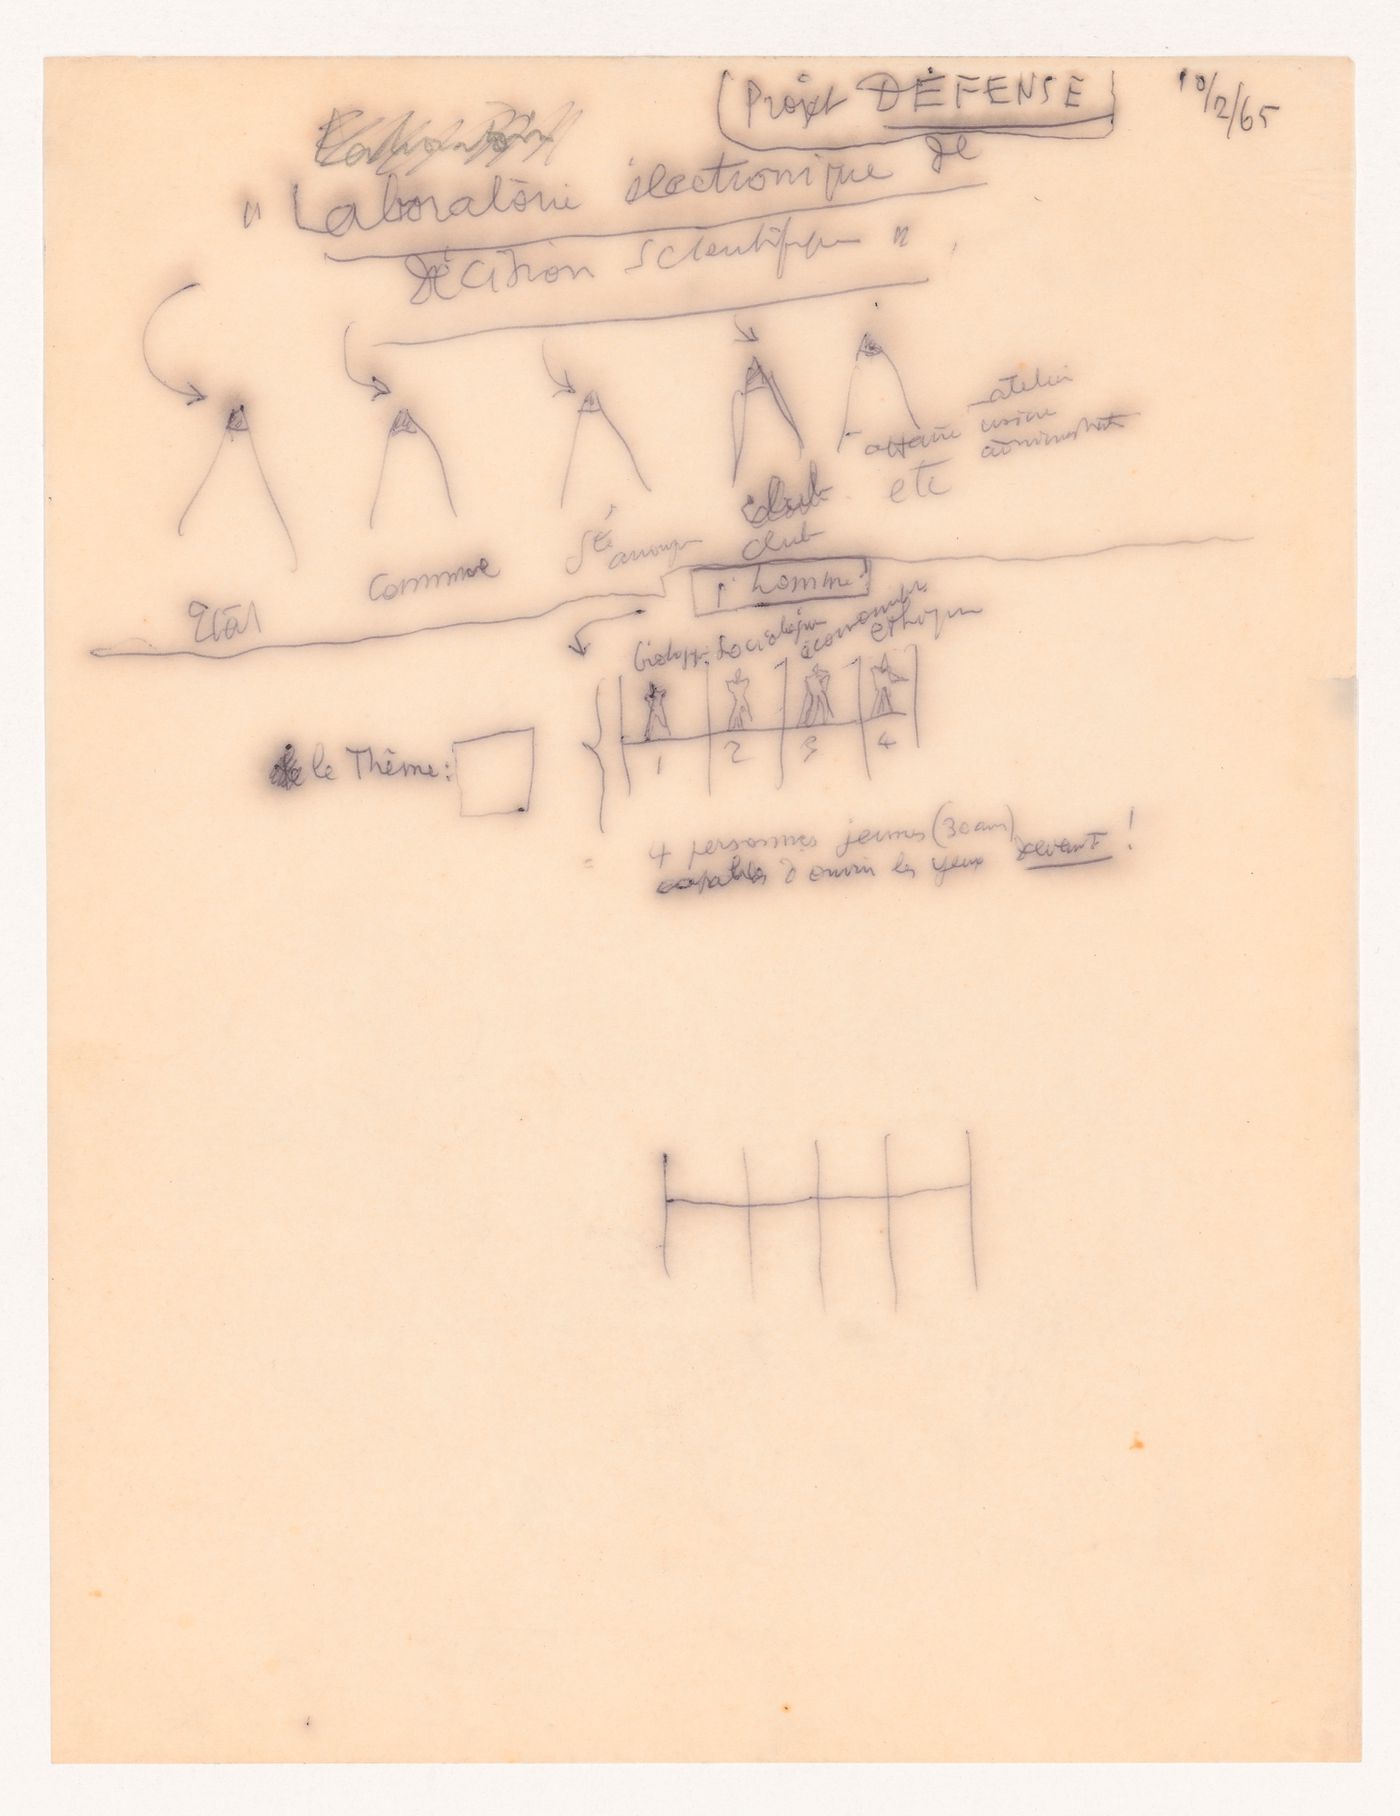 Projet DÉFENSE
10/2/65
"Laboratoire électronique de
décision scientifique"
État
Commune
Sté anonyme
club
affaire
atelier
usine
etc
l'homme!
biologie sociologie économiste ethique
1 2 3 4
le Thême:
4 personnes jeunes (30 ans)
capables d'ouvrir les yeux devant!